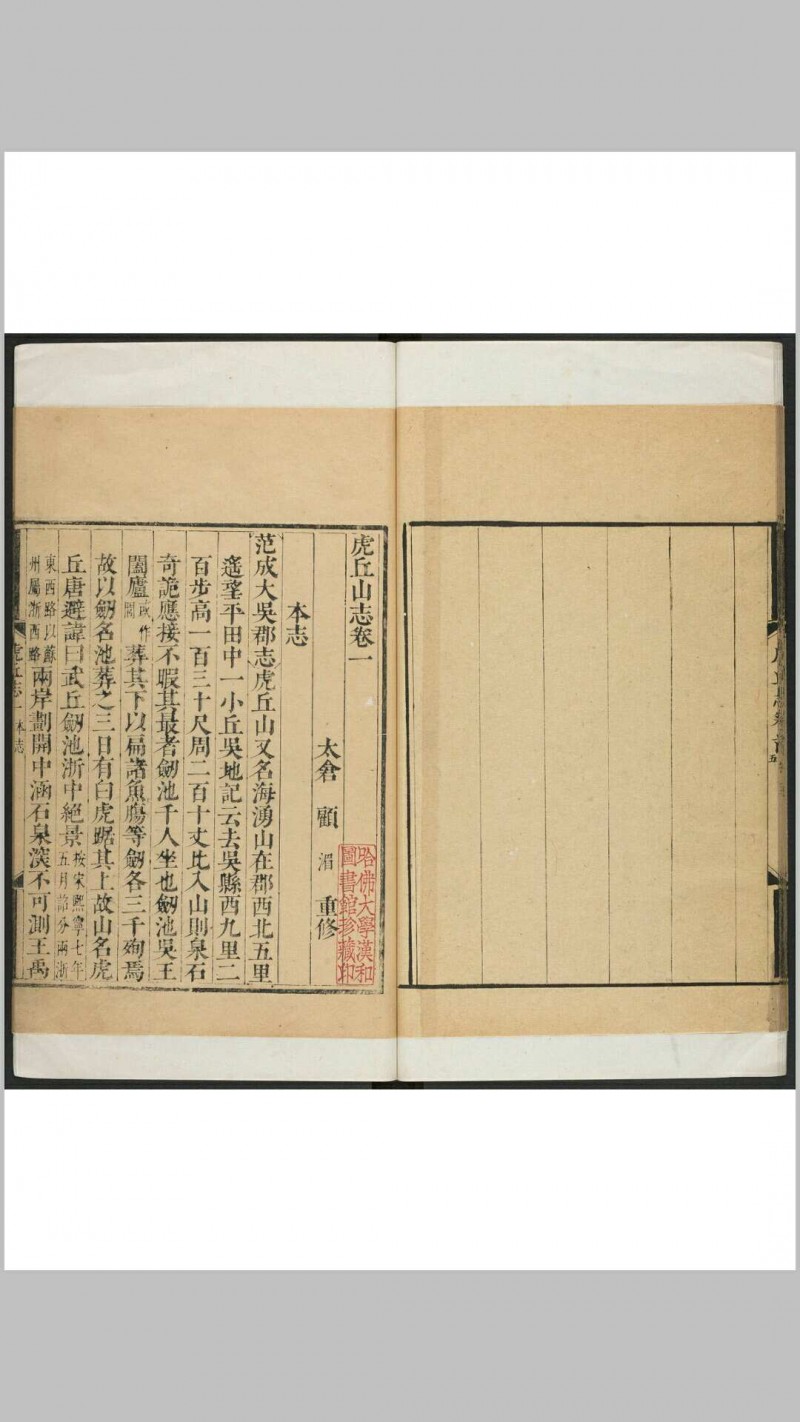 虎丘山志卷一
太倉 顧 湄 重修
哈佛大學漢和
圖書館珍藏印
本志
范成大吳郡志虎丘山又名海湧山在郡西北五里
遙望平田中一小丘吳地記云去吳縣西九里二
百步高一百三十尺周二百十丈比入山則泉石
奇詭應接不暇其最者劒池千人坐也劒池吳王
闔廬或作闔葬其下以扁諸魚膓等劒各三千殉焉
故以劒名池葬之三日有白虎踞其上故山名虎
丘唐避諱曰武丘劒池浙中絕景按宋熙寧七年五月詔分兩浙
東西路以蘇州屬浙西路兩岸劃開中涵石泉深不可測王禹
虎丘志一 本志